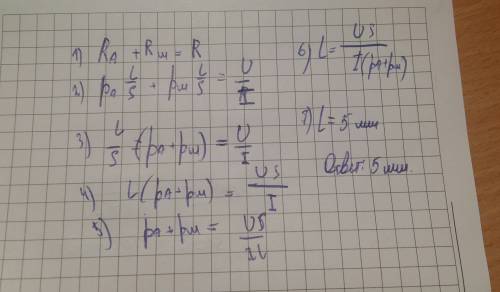 1) RА + Rм = R
2) pА L/S + pм L/S = U/I
3) L/S (pА + pм) = U/I
4) L(pА + pм) = US/I
5) pА + pм = US/IL
6) L = US/I(pА+pм)
7) L = 5 мм
Ответ: 5 мм.